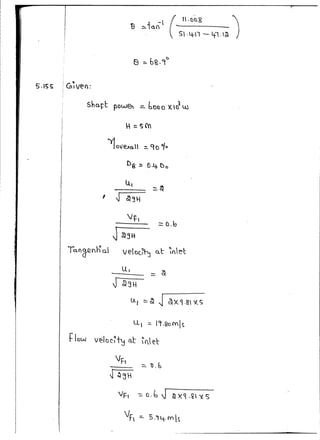 θ = tan⁻¹ ( 11.008 / 51.417 − 47.12 )
θ = 68.7°
5.155 Given:
Shaft power = 6000 x10³ W
H = 5m
ηoverall = 90 %
DB = 0.4 Do
u₁ / √2gH = 2
VF₁ / √2gH = 0.6
Tangential velocity at inlet
u₁ / √2gH = 2
u₁ = 2 √2x9.81x5
u₁ = 19.80 m/s
Flow velocity at inlet
VF₁ / √2gH = 0.6
VF₁ = 0.6 √2x9.81x5
VF₁ = 5.94 m/s